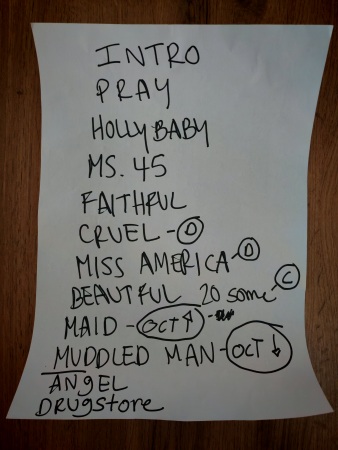 INTRO
PRAY
HOLLY BABY
MS. 45
FAITHFUL
CRUEL - D
MISS AMERICA D
BEAUTIFUL 20 some C
MAID - OCT ↑ -
MUDDLED MAN - OCT ↓
ANGEL
DRUGStore